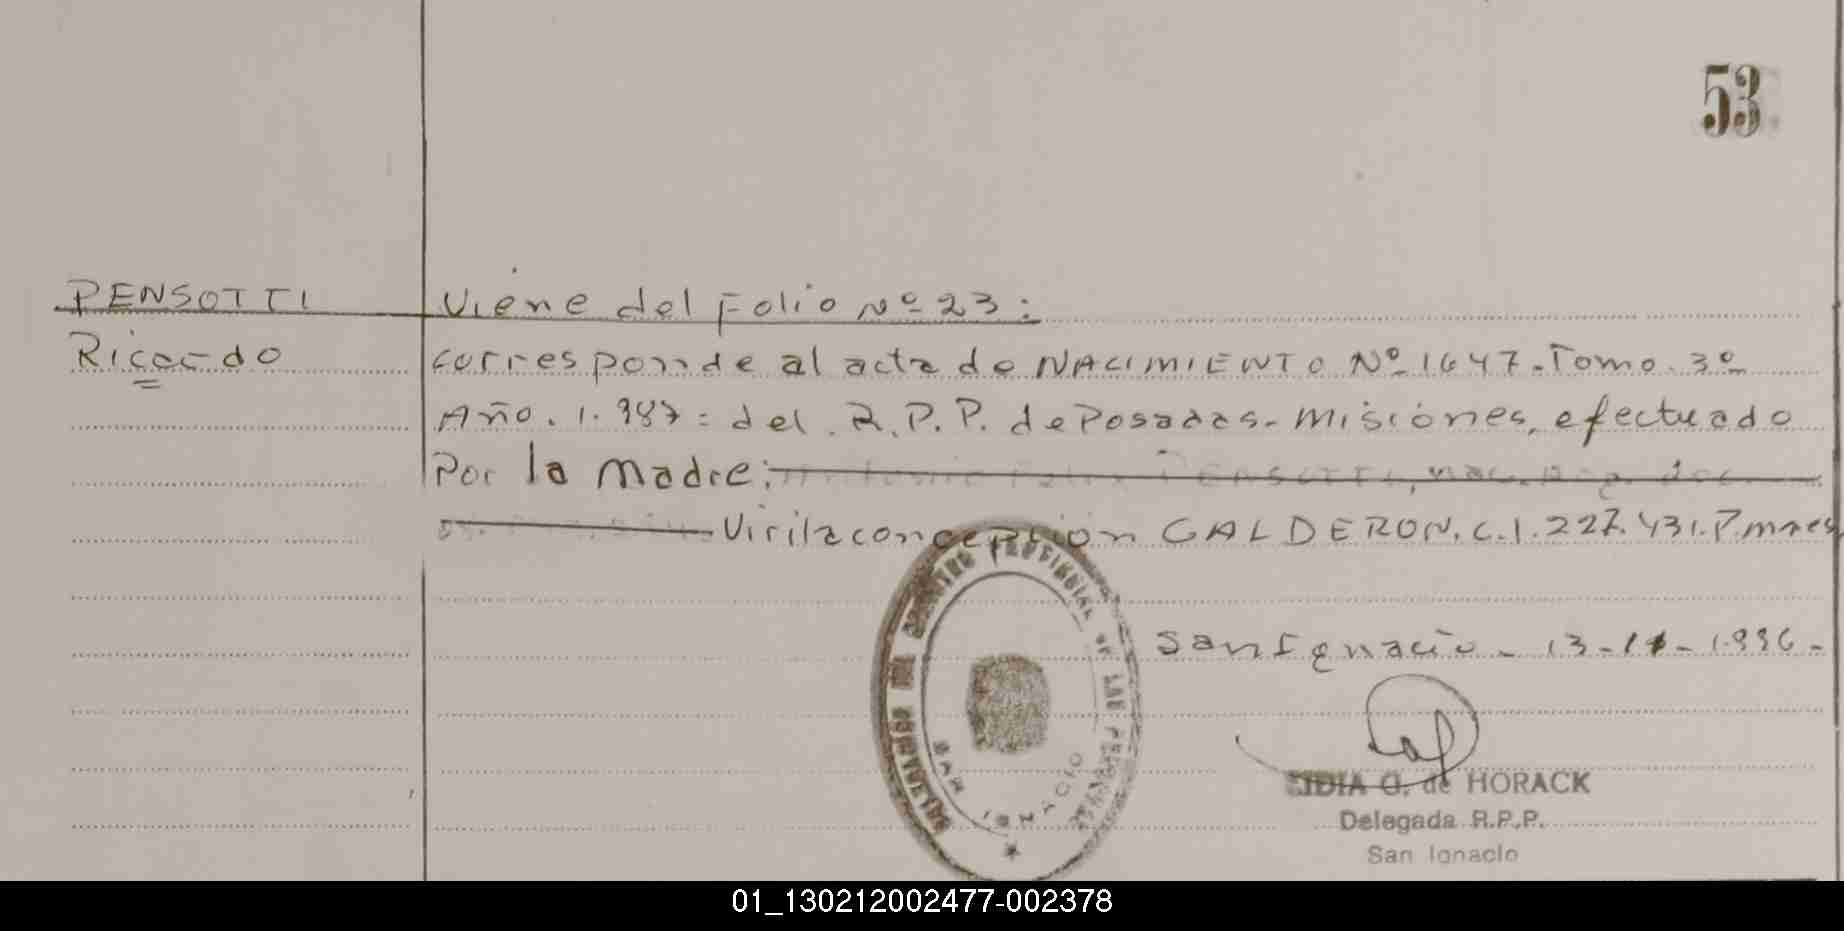 53
PENSOTTI
Ricardo
Viene del Folio Nº 23:
corresponde al acta de NACIMIENTO Nº 1647. Tomo. 3º
Año. 1.987= del R.P.P. de Posadas-Misiones, efectuado
Por la madre:
Virila concepción CALDERON. C.I. 227.431. P. mnes
San Ignacio - 13-11-1.996-
PROVINCIAL DE LAS PERSONAS
SAN IGNACIO
LIDIA O. de HORACK
Delegada R.P.P.
San Ignacio
01_130212002477-002378